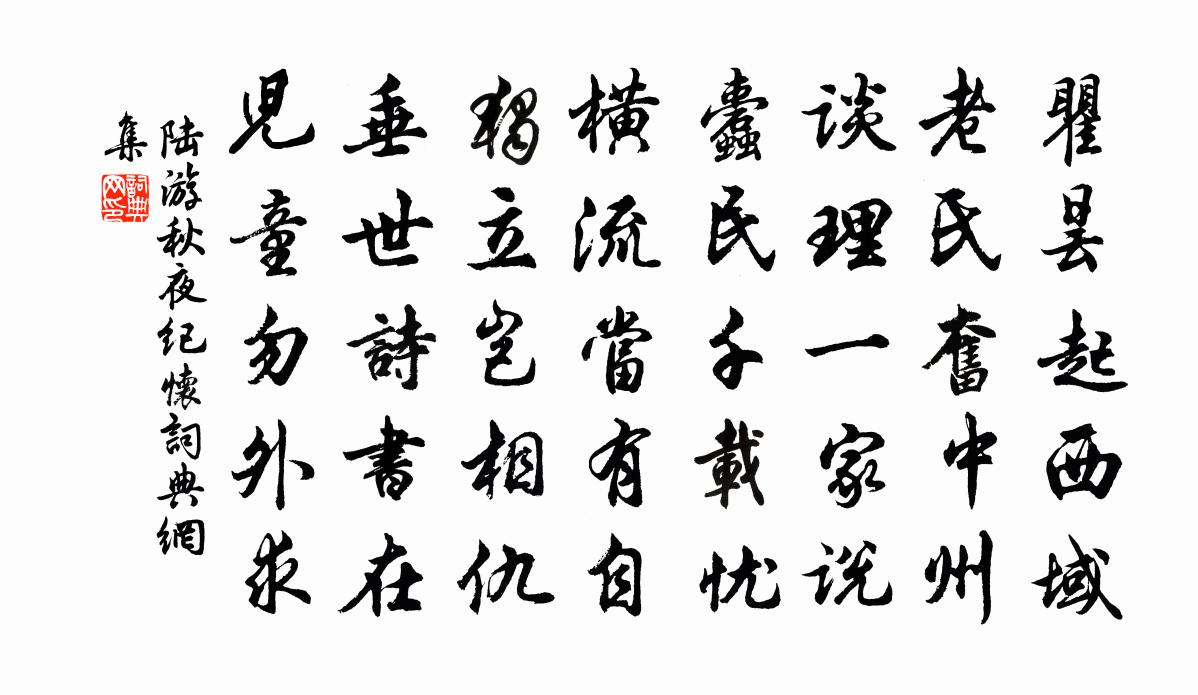 瞿曇起西域
老氏奮中州
談理一家説
蠹民千載憂
橫流當有自
獨立豈相仇
垂世詩書在
兒童勿外求
陸游秋夜纪懷詞典網
集
詞典網印